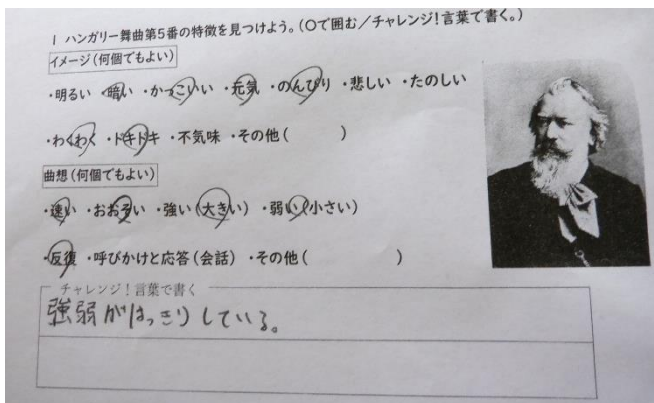 1 ハンガリー舞曲第5番の特徴を見つけよう。(〇で囲む/チャレンジ!言葉で書く。)
イメージ(何個でもよい)
・明るい ・暗い ・かっこいい ・元気 ・のんびり ・悲しい ・たのしい
・わくわく ・ドキドキ ・不気味 ・その他( )
曲想(何個でもよい)
・速い ・おおそい ・強い(大きい) ・弱い(小さい)
・反復 ・呼びかけと応答(会話) ・その他( )
チャレンジ!言葉で書く
強弱がはっきりしている。